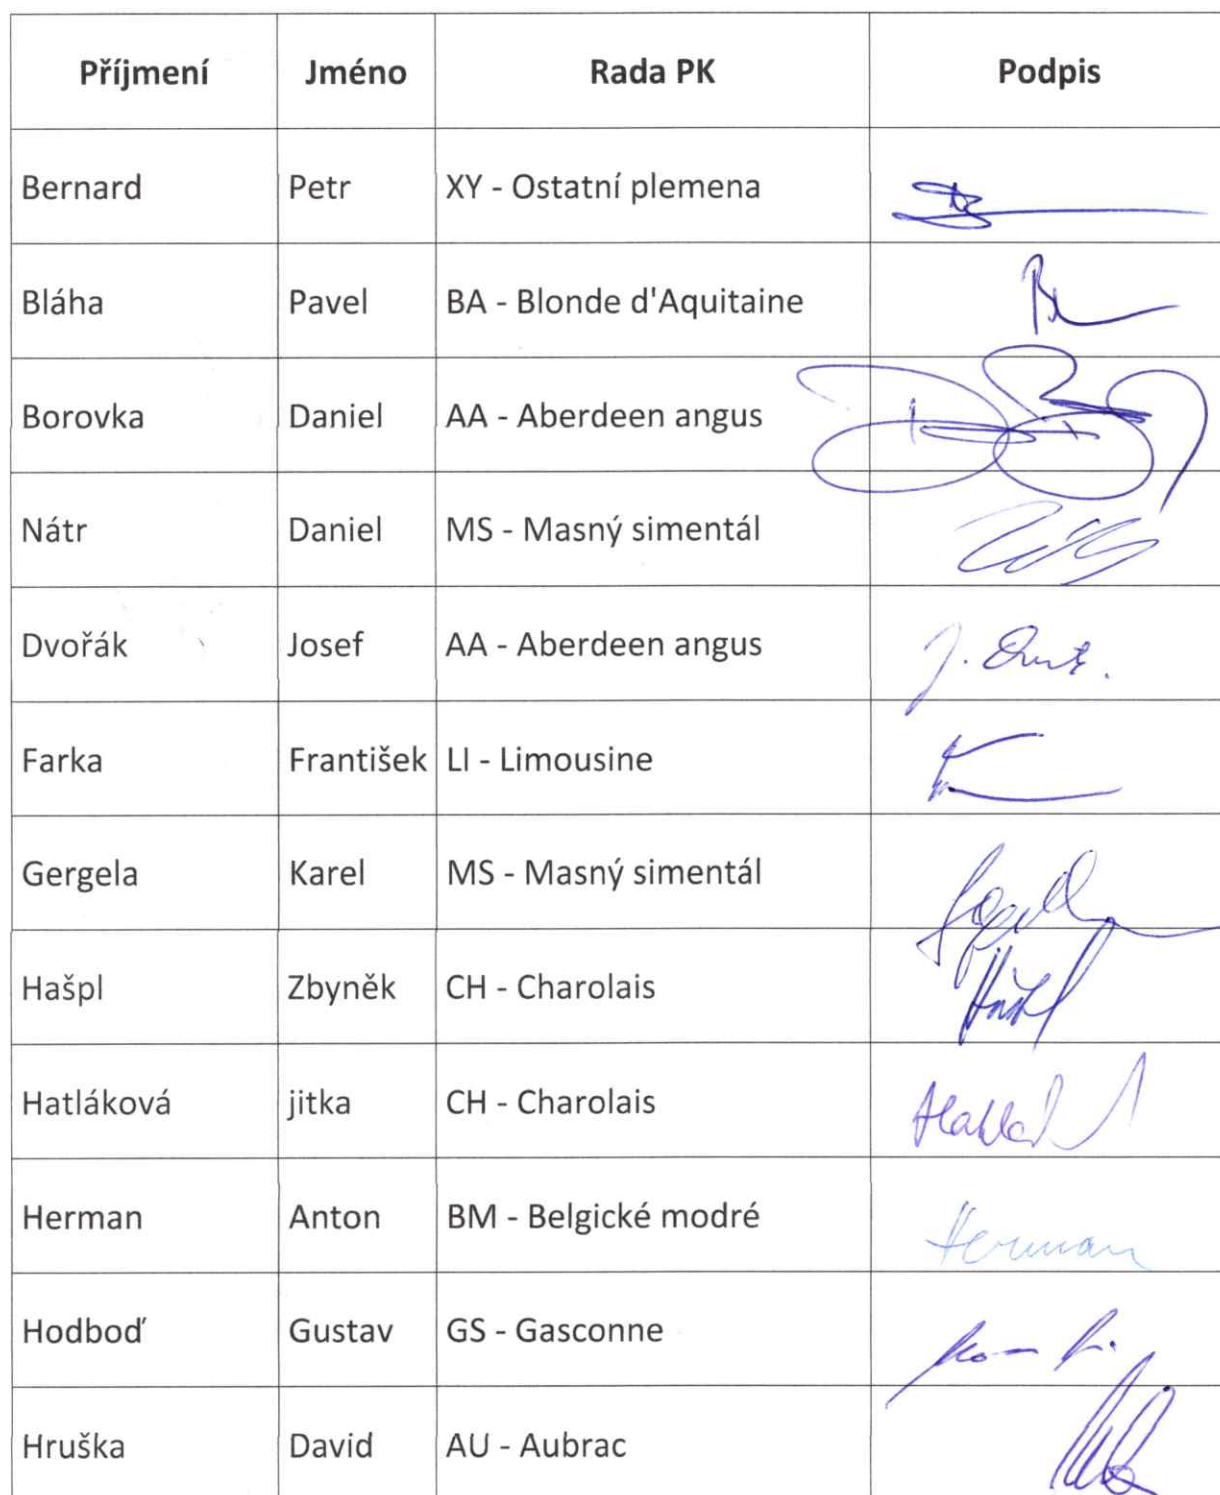 Příjmení Jméno Rada PK Podpis
Bernard Petr XY - Ostatní plemena
Bláha Pavel BA - Blonde d'Aquitaine
Borovka Daniel AA - Aberdeen angus
Nátr Daniel MS - Masný simentál
Dvořák Josef AA - Aberdeen angus J.
Farka František LI - Limousine
Gergela Karel MS - Masný simentál
Hašpl Zbyněk CH - Charolais
Hatláková jitka CH - Charolais
Herman Anton BM - Belgické modré Herman
Hodboď Gustav GS - Gasconne
Hruška David AU - Aubrac